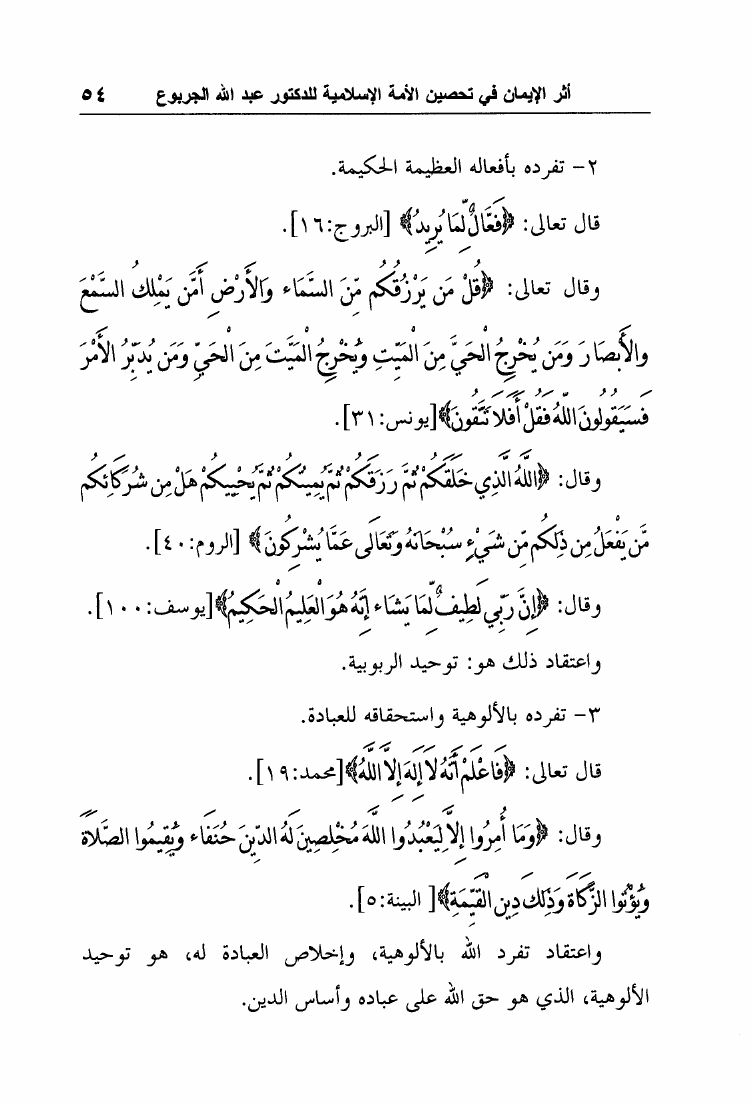 أثر الإيمان في تحصين الأمة الإسلامية للدكتور عبد الله الجربوع ٥٤
٢- تفرده بأفعاله العظيمة الحكيمة.
قال تعالى: ﴿فَعَّالٌ لِّمَا يُرِيدُ﴾ [البروج:١٦].
وقال تعالى: ﴿قُلْ مَن يَرْزُقُكُم مِّنَ السَّمَاء وَالأَرْضِ أَمَّن يَمْلِكُ السَّمْعَ
والأَبْصَارَ وَمَن يُخْرِجُ الْحَيَّ مِنَ الْمَيِّتِ وَيُخْرِجُ الْمَيَّتَ مِنَ الْحَيِّ وَمَن يُدَبِّرُ الأَمْرَ
فَسَيَقُولُونَ اللّهُ فَقُلْ أَفَلاَ تَتَّقُونَ﴾[يونس:٣١].
وقال: ﴿اللَّهُ الَّذِي خَلَقَكُمْ ثُمَّ رَزَقَكُمْ ثُمَّ يُمِيتُكُمْ ثُمَّ يُحْيِيكُمْ هَلْ مِن شُرَكَائِكُم
مَّن يَفْعَلُ مِن ذَلِكُم مِّن شَيْءٍ سُبْحَانَهُ وَتَعَالَى عَمَّا يُشْرِكُونَ﴾ [الروم:٤٠].
وقال: ﴿إِنَّ رَبِّي لَطِيفٌ لِّمَا يَشَاء إِنَّهُ هُوَ الْعَلِيمُ الْحَكِيمُ﴾[يوسف:١٠٠].
واعتقاد ذلك هو: توحيد الربوبية.
٣- تفرده بالألوهية واستحقاقه للعبادة.
قال تعالى: ﴿فَاعْلَمْ أَنَّهُ لاَ إِلَهَ إِلاَّ اللَّهُ﴾[محمد:١٩].
وقال: ﴿وَمَا أُمِرُوا إِلاَّ لِيَعْبُدُوا اللَّهَ مُخْلِصِينَ لَهُ الدِّينَ حُنَفَاء وَيُقِيمُوا الصَّلاَةَ
وَيُؤْتُوا الزَّكَاةَ وَذَلِكَ دِينُ الْقَيِّمَةِ﴾[ البينة:٥].
واعتقاد تفرد الله بالألوهية، وإخلاص العبادة له، هو توحيد
الألوهية، الذي هو حق الله على عباده وأساس الدين.